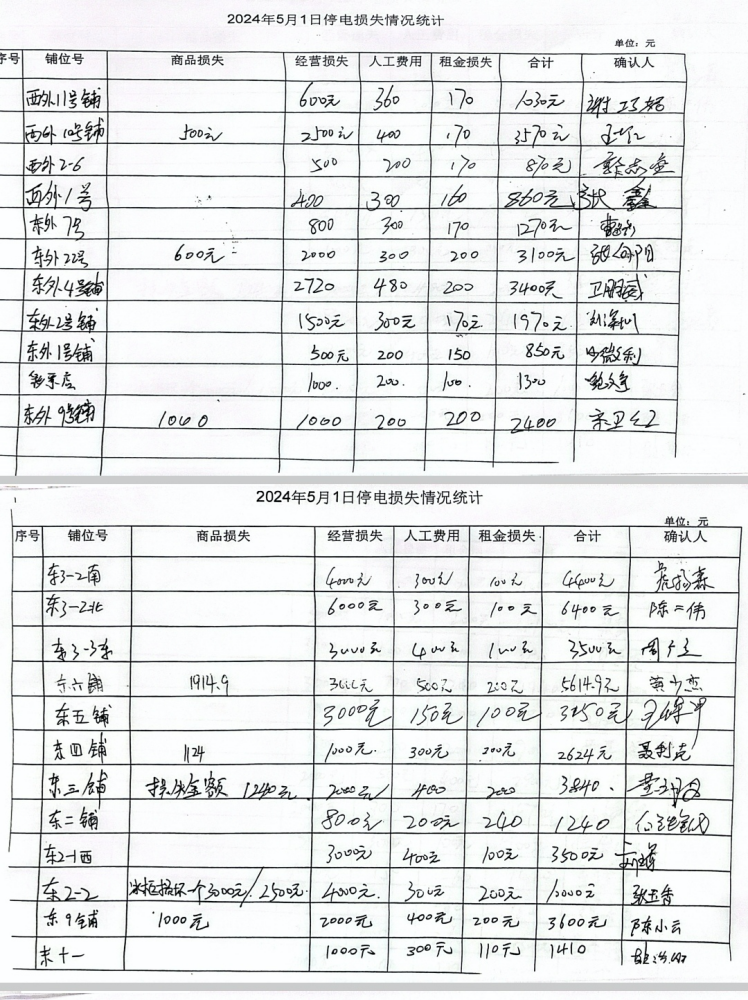 2024年5月1日停电损失情况统计
单位：元
序号 铺位号 商品损失 经营损失 人工费用 租金损失 合计 确认人
西外11号铺 600元 360 170 1030元
西外10号铺 500元 2500元 400 170 3570元
西外2-6 500 200 170 870元
西外1号 400 300 160 860元 张鑫
东外7号 800 300 170 1270元
东外22号 600元 2000 300 200 3100元 张向阳
东外4号铺 2720 480 200 3400元 卫朋威
东外2号铺 1500元 300元 170元 1970元 刘深圳
东外1号铺 500元 200 150 850元
1000. 200. 100. 1300
东外9号铺 1000 1000 200 200 2400
2024年5月1日停电损失情况统计
单位：元
序号 铺位号 商品损失 经营损失 人工费用 租金损失 合计 确认人
东3-2南 4000元 300元 100元 4400元
东3-2北 6000元 300元 100元 6400元 陈二伟
东3-3东 3000元 400元 100元 3500元
东六铺 1914.9 3000元 500元 200元 5614.9元 黄少杰
东五铺 3000元 150元 100元 3250元
东四铺 1124 1000元. 300元 200元 2624元 聂利克
东三铺 损失金额 1240元. 2000元 400 200 3840.
东二铺 800元 200元 240 1240
东2-1西 3000元 400元 100元 3500元
东2-2 冰柜损坏一个3000元/2500元. 4000元. 300元 200元 10000元 张玉香
东9铺 1000元 2000元 400元 200元 3600元 陈小云
东十一 1000元 300元 110元 1410